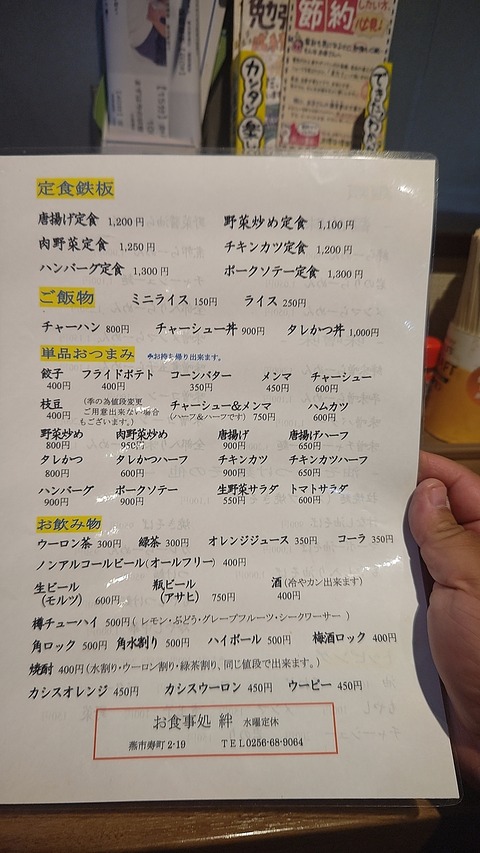 節約
カンタン
定食鉄板
唐揚げ定食 1,200円 野菜炒め定食 1,100円
肉野菜定食 1,250円 チキンカツ定食 1,200円
ハンバーグ定食 1,300円 ポークソテー定食 1,300円
ご飯物 ミニライス 150円 ライス 250円
チャーハン 800円 チャーシュー丼 900円 タレかつ丼 1,000円
単品おつまみ ※お持ち帰り出来ます。
餃子 フライドポテト コーンバター メンマ チャーシュー
400円 400円 350円 450円 600円
枝豆 (季の為値段変更 チャーシュー&メンマ ハムカツ
400円 ご用意出来ない場合 (ハーフ&ハーフです) 750円 600円
もございます。)
野菜炒め 肉野菜炒め 唐揚げ 唐揚げハーフ
800円 950円 900円 650円
タレかつ タレかつハーフ チキンカツ チキンカツハーフ
800円 600円 900円 650円
ハンバーグ ポークソテー 生野菜サラダ トマトサラダ
900円 900円 550円 600円
お飲み物
ウーロン茶 300円 緑茶 300円 オレンジジュース 350円 コーラ 350円
ノンアルコールビール(オールフリー) 400円
生ビール 瓶ビール 酒 (冷やカン出来ます)
(モルツ) 600円 (アサヒ) 750円 400円
樽チューハイ 500円 ( レモン・ぶどう・グレープフルーツ・シークワーサー )
角ロック 500円 角水割り 500円 ハイボール 500円 梅酒ロック 400円
焼酎 400円 (水割り・ウーロン割り・緑茶割り、同じ値段で出来ます。)
カシスオレンジ 450円 カシスウーロン 450円 ウーピー 450円
お食事処 絆 水曜定休
燕市寿町2-19 TEL0256-68-9064